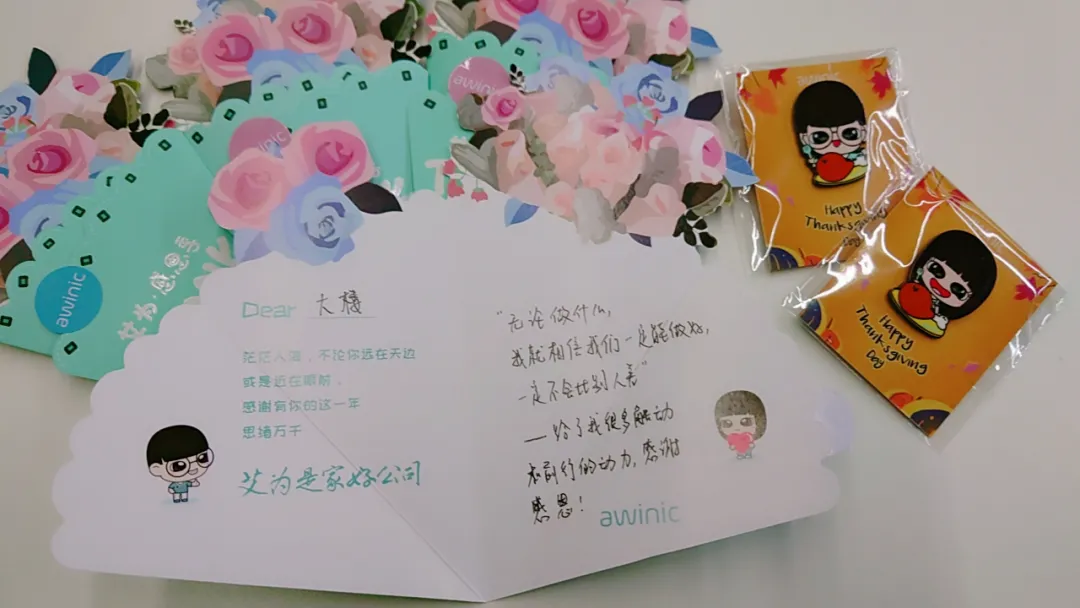 awinic
awinic
awinic
艾为,感恩
Dear 大模
茫茫人海，不论你远在天边
或是远在眼前，
感谢有你的这一年
思绪万千
艾为是家好公司
"无论做什么,
我就相信我们一定能做好,
一定不会比别人差"
—给了我很多触动
和前行的动力,感谢
感恩!
awinic
awinic
Happy
Thanksgiving
Day
Happy
Thanksgiving
Day